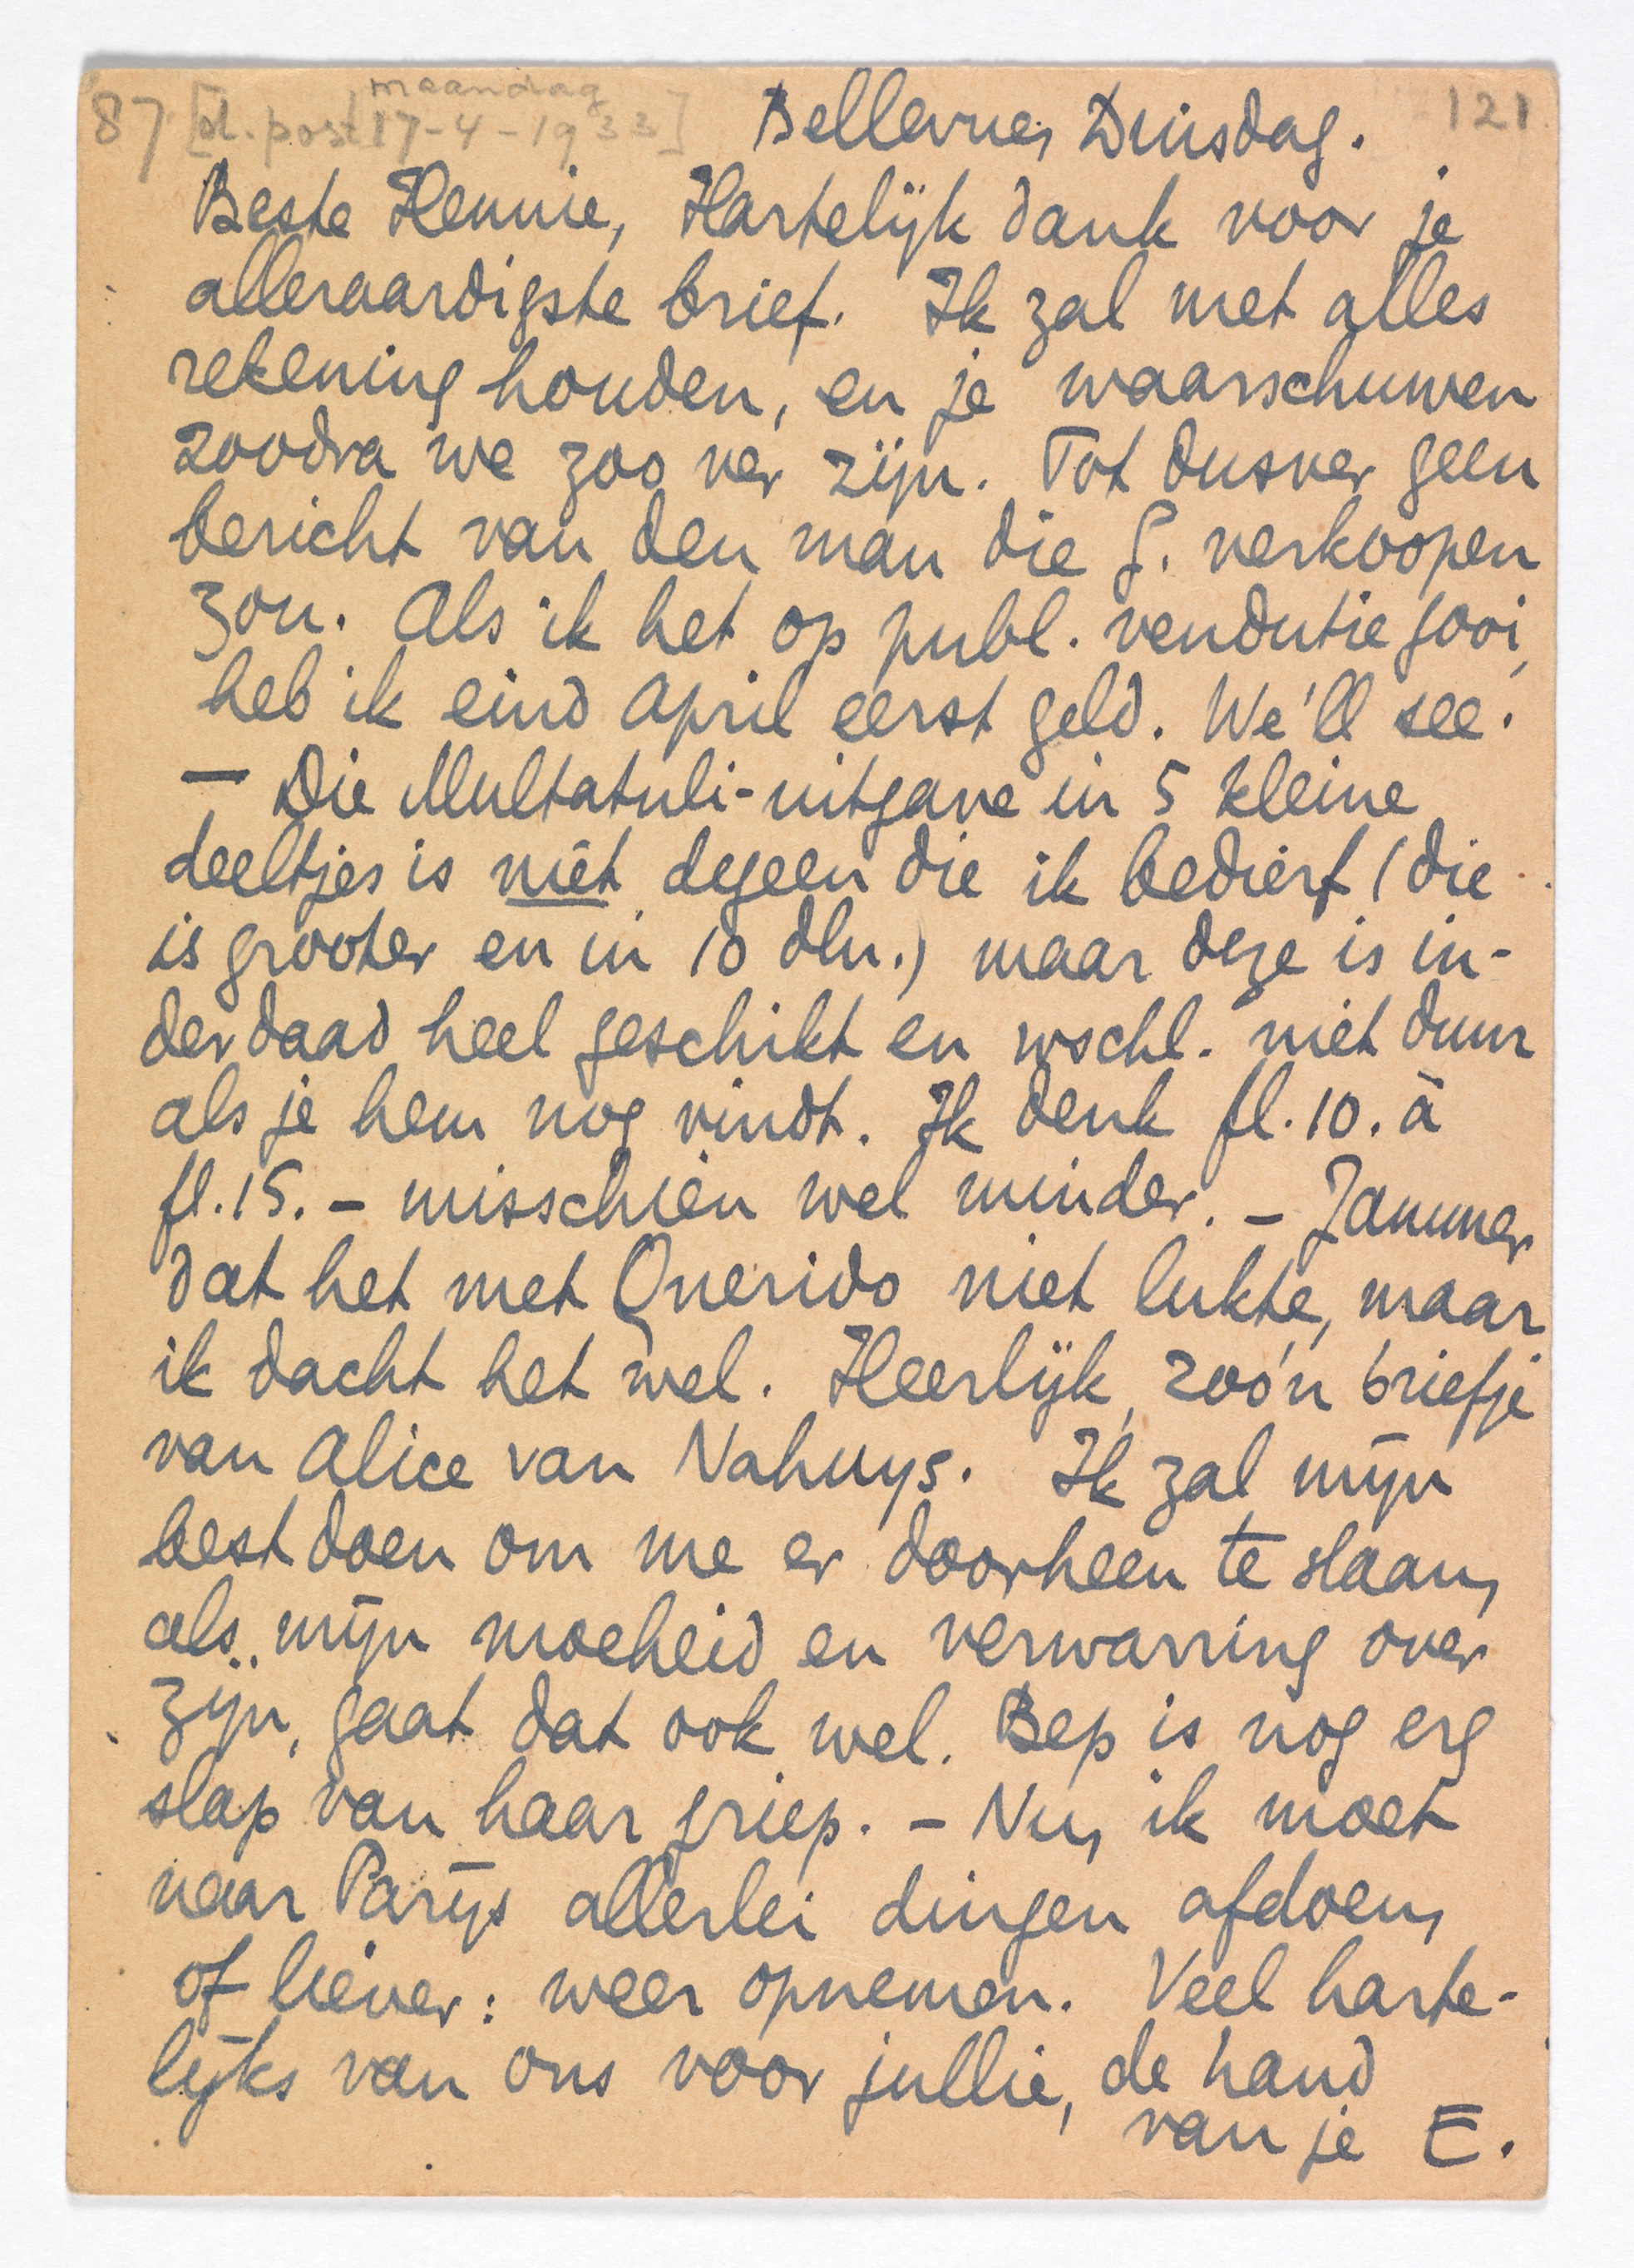 87 [d. post maandag 17-4-1933] 121
Bellevue, Dinsdag.
Beste Hennie, Hartelijk dank voor je
alleraardigste brief. Ik zal met alles
rekening houden, en je waarschuwen
zoodra we zoo ver zijn. Tot dusver geen
bericht van den man die G. verkoopen
zou. Als ik het op publ. vendutie gooi,
heb ik eind April eerst geld. We'll see.
— Die Multatuli-uitgave in 5 kleine
deeltjes is niet degeen die ik bedierf (die
is grooter en in 10 dln.) maar deze is in-
derdaad heel geschikt en wschl. niet duur
als je hem nog vindt. Ik denk fl. 10. à
fl. 15. – misschien wel minder. – Jammer
dat het met Querido niet lukte, maar
ik dacht het wel. Heerlijk, zoo'n briefje
van Alice van Nahuys. Ik zal mijn
best doen om me er doorheen te slaan,
als mijn moeheid en verwarring over
zijn, gaat dat ook wel. Bep is nog erg
slap van haar griep. – Nu, ik moet
naar Parijs allerlei dingen afdoen,
of liever: weer opnemen. Veel harte-
lijks van ons voor jullie, de hand
van je E.